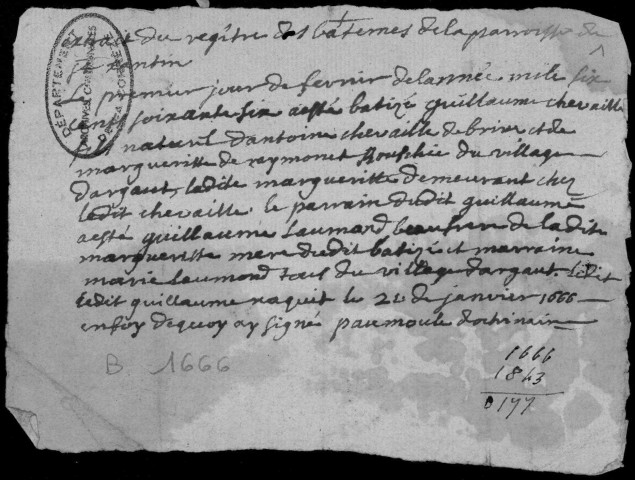 extrait du regître des batemes de la parroisse de
St
le premier jour de fevrir de lannée mile six
cens soixante six a esté batizé guillaume chevaille
fils naturel dantoine chevaille de brive et de
margueritte de raymonet du village
dargaut, ladite margueritte demeurant chez
ledit chevaille. le parrain dudit guillaume
a esté guillaume laumard beaufrere de la dite
margueritte mere dudit batizé et marraine
marie laumond tous du village dargaut. ledit
ledit guillaume naquit le 21 de janvier 1666
en foy de quoy ay signé
B. 1666
1666
1843
0177
DÉPARTEMENT
ARCHIVES
DE LA CORRÈZE